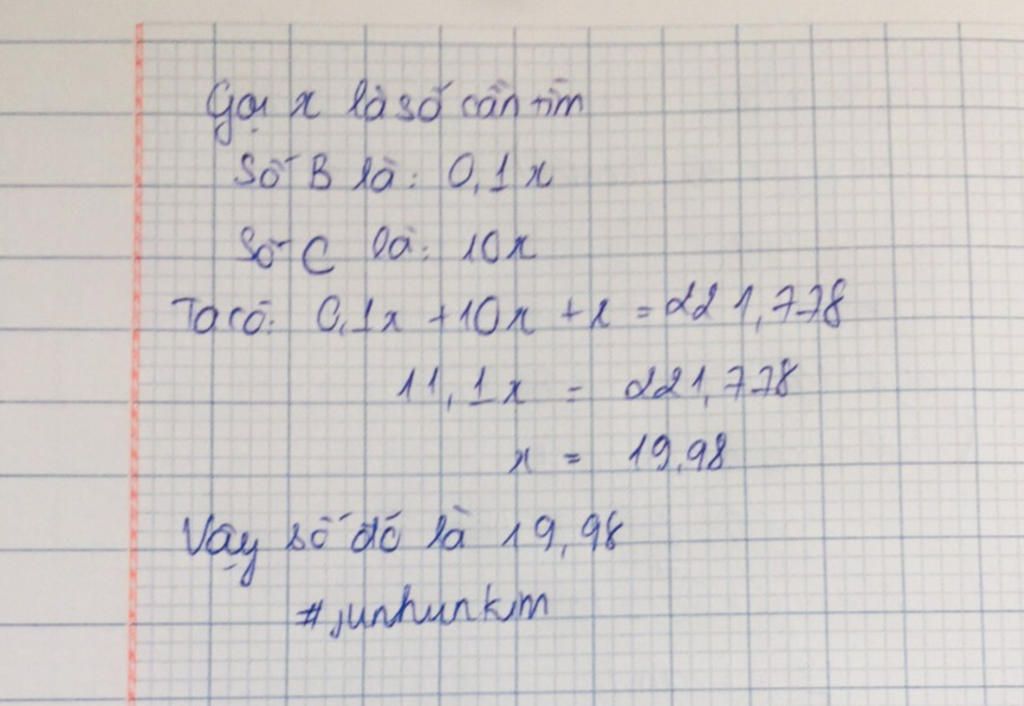 Gọi x là số cần tìm
Số B là: 0,1x
Số C là: 10x
Ta có: 0,1x + 10x + x = 221,778
11,1x = 221,778
x = 19,98
Vậy số đó là 19,98
#junhunkim